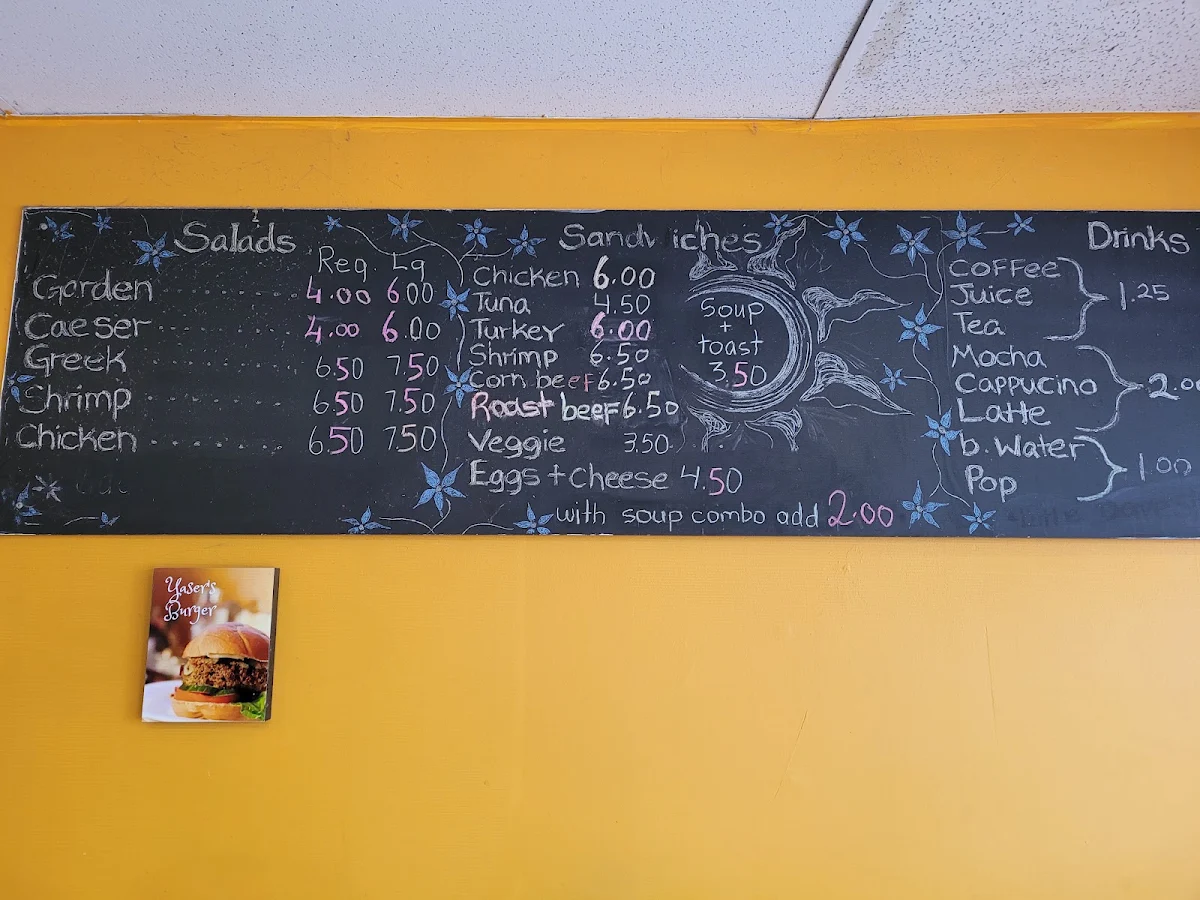 Salads
Reg Lg
Garden 4.00 6.00
Caeser 4.00 6.00
Greek 6.50 7.50
Shrimp 6.50 7.50
Chicken 6.50 7.50
Sandwiches
Chicken 6.00
Tuna 4.50
Turkey 6.00
Shrimp 6.50
Corn beef 6.50
Roast beef 6.50
Veggie 3.50
Eggs + Cheese 4.50
with soup combo add 2.00
Soup
+
toast
3.50
Drinks
Coffee
Juice
Tea
1.25
Mocha
Cappucino
Latte
2.00
b. Water
Pop
1.00
Yaser's
Burger